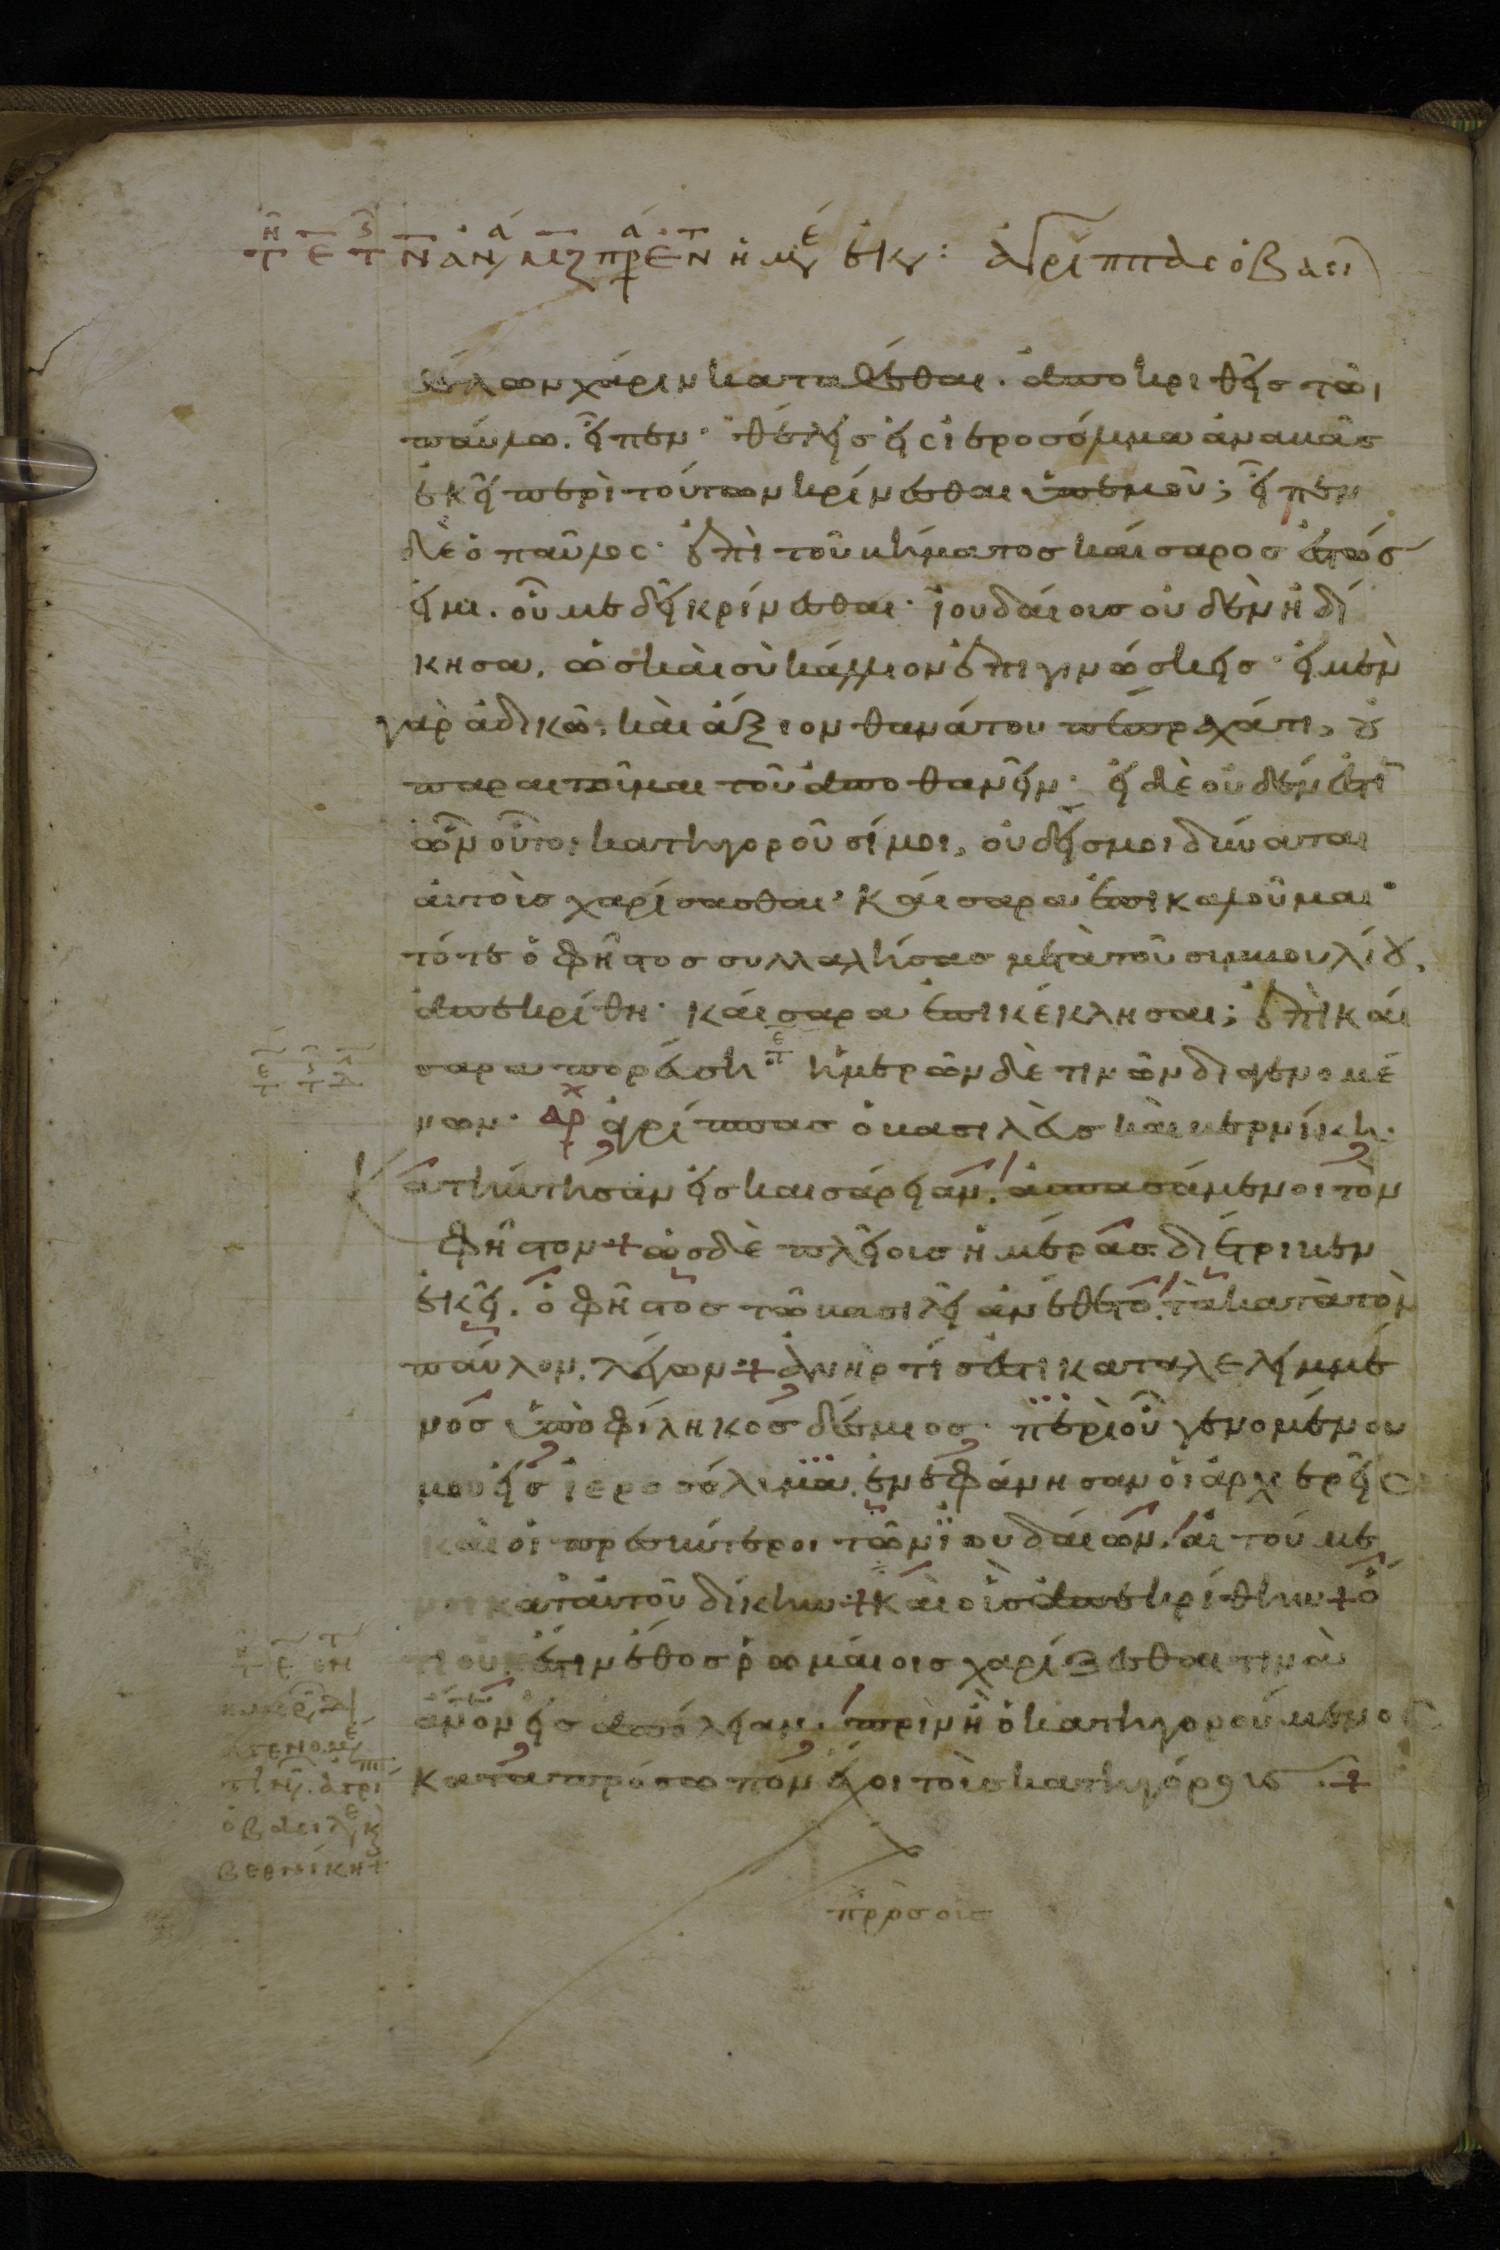 θέλων χάριν καταθέσθαι. ἀποκριθεὶς τῶι
παύλω. εἶπεν· θέλης εἰς ἱεροσόλυμα ἀναβὰς
ἐκεῖ περὶ τούτων κρίνεσθαι ἐπ' ἐμοῦ; εἶπεν
δὲ ὁ παῦλος· ἐπὶ τοῦ βήματος καίσαρος ἑστώς
εἰμι. οὗ με δεῖ κρίνεσθαι· ἰουδαίοις οὐδὲν ἠδί
κησα, ὡς καὶ σὺ κάλλιον ἐπιγινώσκεις· εἰ μὲν
γὰρ ἀδικῶ, καὶ ἄξιον θανάτου πέπραχά τι, οὐ
παραιτοῦμαι τοῦ ἀποθανεῖν· εἰ δὲ οὐδέν ἐστιν
ὧν οὗτοι κατηγοροῦσί μοι, οὐδείς μοι δύναται
αὐτοῖς χαρίσασθαι· Καίσαρα ἐπικαλοῦμαι·
τότε ὁ φῆστος συλλαλήσας μετὰ τοῦ συμβουλίου,
ἀπεκρίθη· καίσαρα ἐπικέκλησαι; ἐπὶ καί
σαρα πορεύση· ἡμερῶν δὲ τινῶν διαγενομέ
νων· ἀγρίππας ὁ βασιλεὺς καὶ βερνίκη
Κατήντησαν εἰς καισάρειαν, ἀσπασάμενοι τὸν
φῆστον + ὡς δὲ πλείους ἡμέρας διέτριβεν
ἐκεῖ, ὁ φῆστος τῶ βασιλεῖ ἀνέθετο, τὰ κατὰ τὸν
παῦλον, λέγων + ἀνήρ τίς ἐστι καταλελειμμέ
νος ὑπὸ φίληκος δέσμιος· περὶ οὗ γενομένου
μου εἰς ἱεροσόλυμα, ἐνεφάνησαν οἱ ἀρχιερεῖς
καὶ οἱ πρεσβύτεροι τῶν ἰουδαίων, αἰτούμε
νοι κατ' αὐτοῦ δίκην + πρὸς οὓς ἀπεκρίθην + ὅ
τι οὐκ ἔστιν ἔθος ῥωμαίοις χαρίζεσθαι τινὰ
ἄνον εἰς ἀπώλειαν, πρὶν ἢ ὁ κατηγορούμενος
κατὰ πρόσωπον ἔχοι τοὺς κατηγόρους +